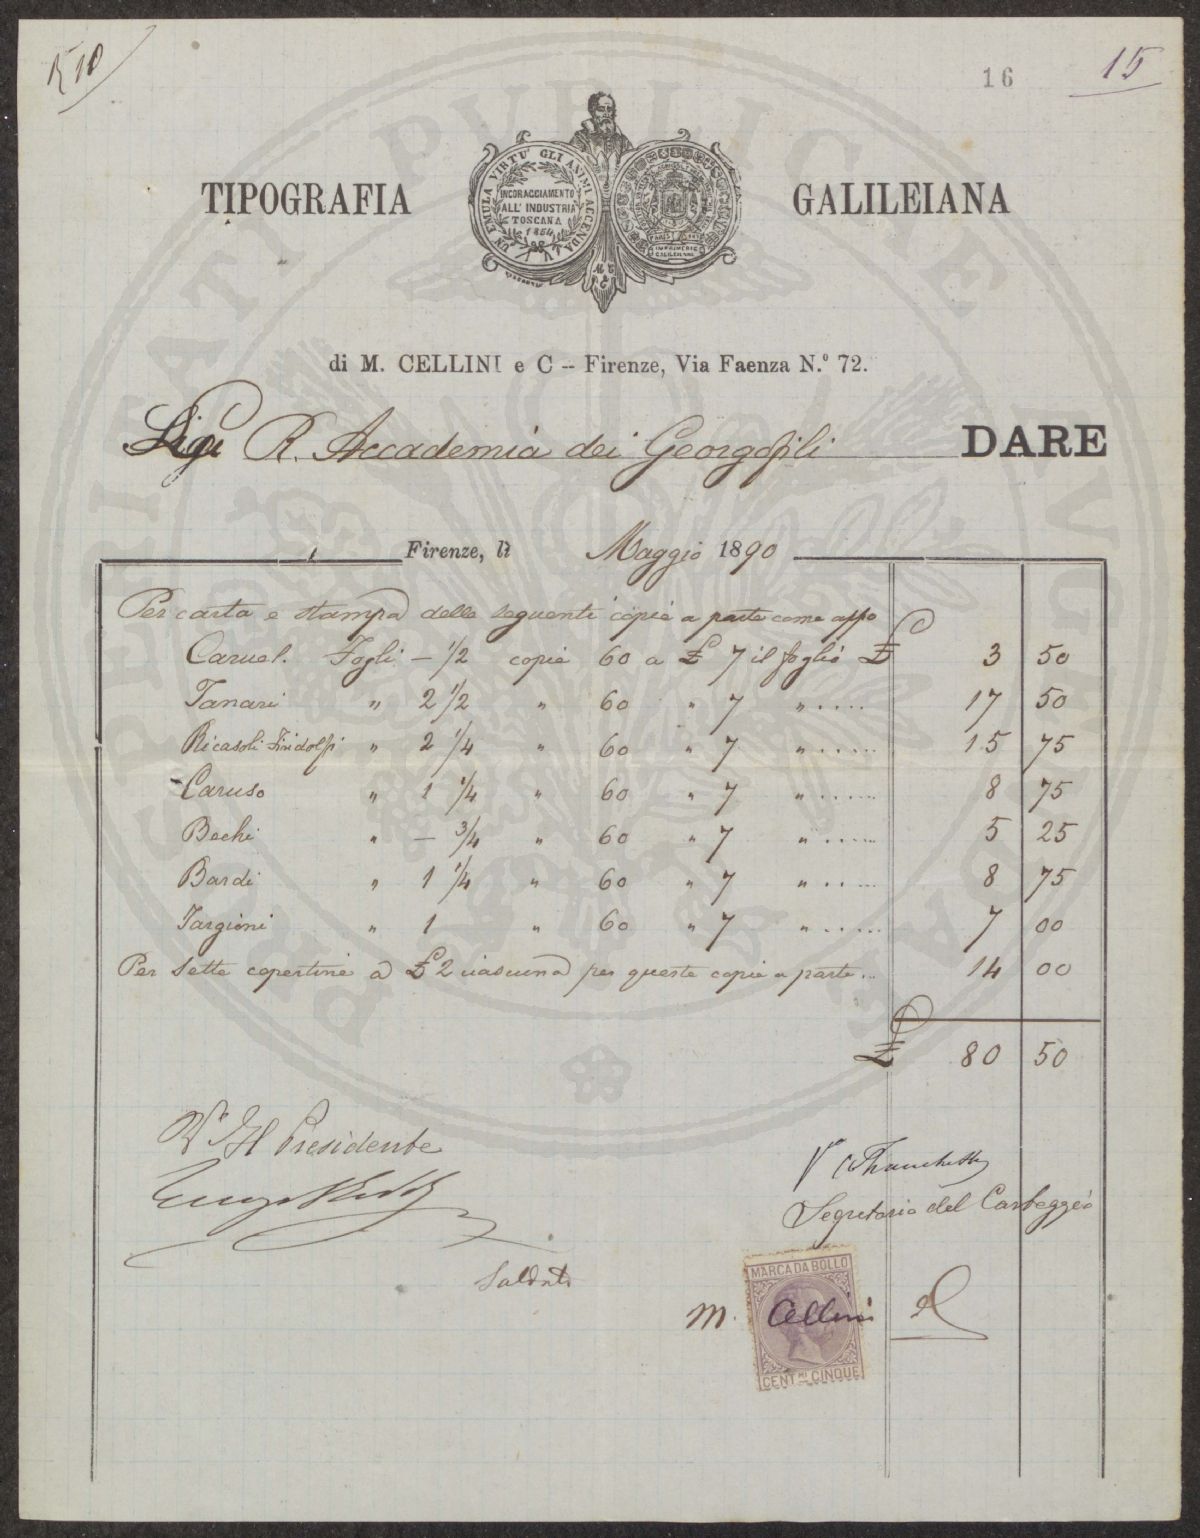 510
16
15
TIPOGRAFIA GALILEIANA
UN EMULA VIRTU' GLI ANIMI ACCENDA
INCORAGGIAMENTO
ALL' INDUSTRIA
TOSCANA
1854
PARIS
IMPRIMERIE
GALILEIENNE
di M. CELLINI e C -- Firenze, Via Faenza N.º 72.
R. Accademia dei Georgofili DARE
Firenze, lì Maggio 1890
Per carta e stampa delle seguenti copie a parte come appo
Caruel. Fogli - 1/2 copie 60 a £ 7 il foglio £ 3 50
Tanari " 2 1/2 " 60 " 7 " ..... 17 50
Ricasoli Firidolfi " 2 1/4 " 60 " 7 " ..... 15 75
Caruso " 1 1/4 " 60 " 7 " ..... 8 75
Bechi " - 3/4 " 60 " 7 " ..... 5 25
Bardi " 1 1/4 " 60 " 7 " ..... 8 75
Targioni " 1 " 60 " 7 " ..... 7 00
Per sette copertine a £ 2 ciascuna per queste copie a parte... 14 00
£ 80 50
Vº Il Presidente
Vº Franchetti
Segretario del Carteggio
Saldato
MARCA DA BOLLO
M. Cellini
CENT.MI CINQUE
PROSPERITATI PUBLICAE AUGENDAE